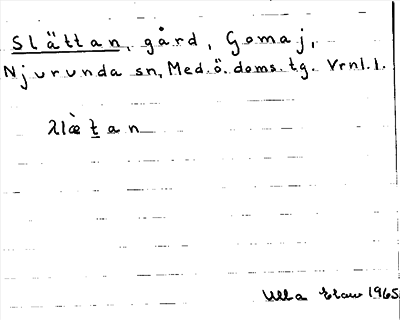 Slättan, gård, Gomaj,
Njurunda sn, Med. ö. doms. tg. Vrnl. l.
λlæ̀ṯan
Ulla Elaw 1965